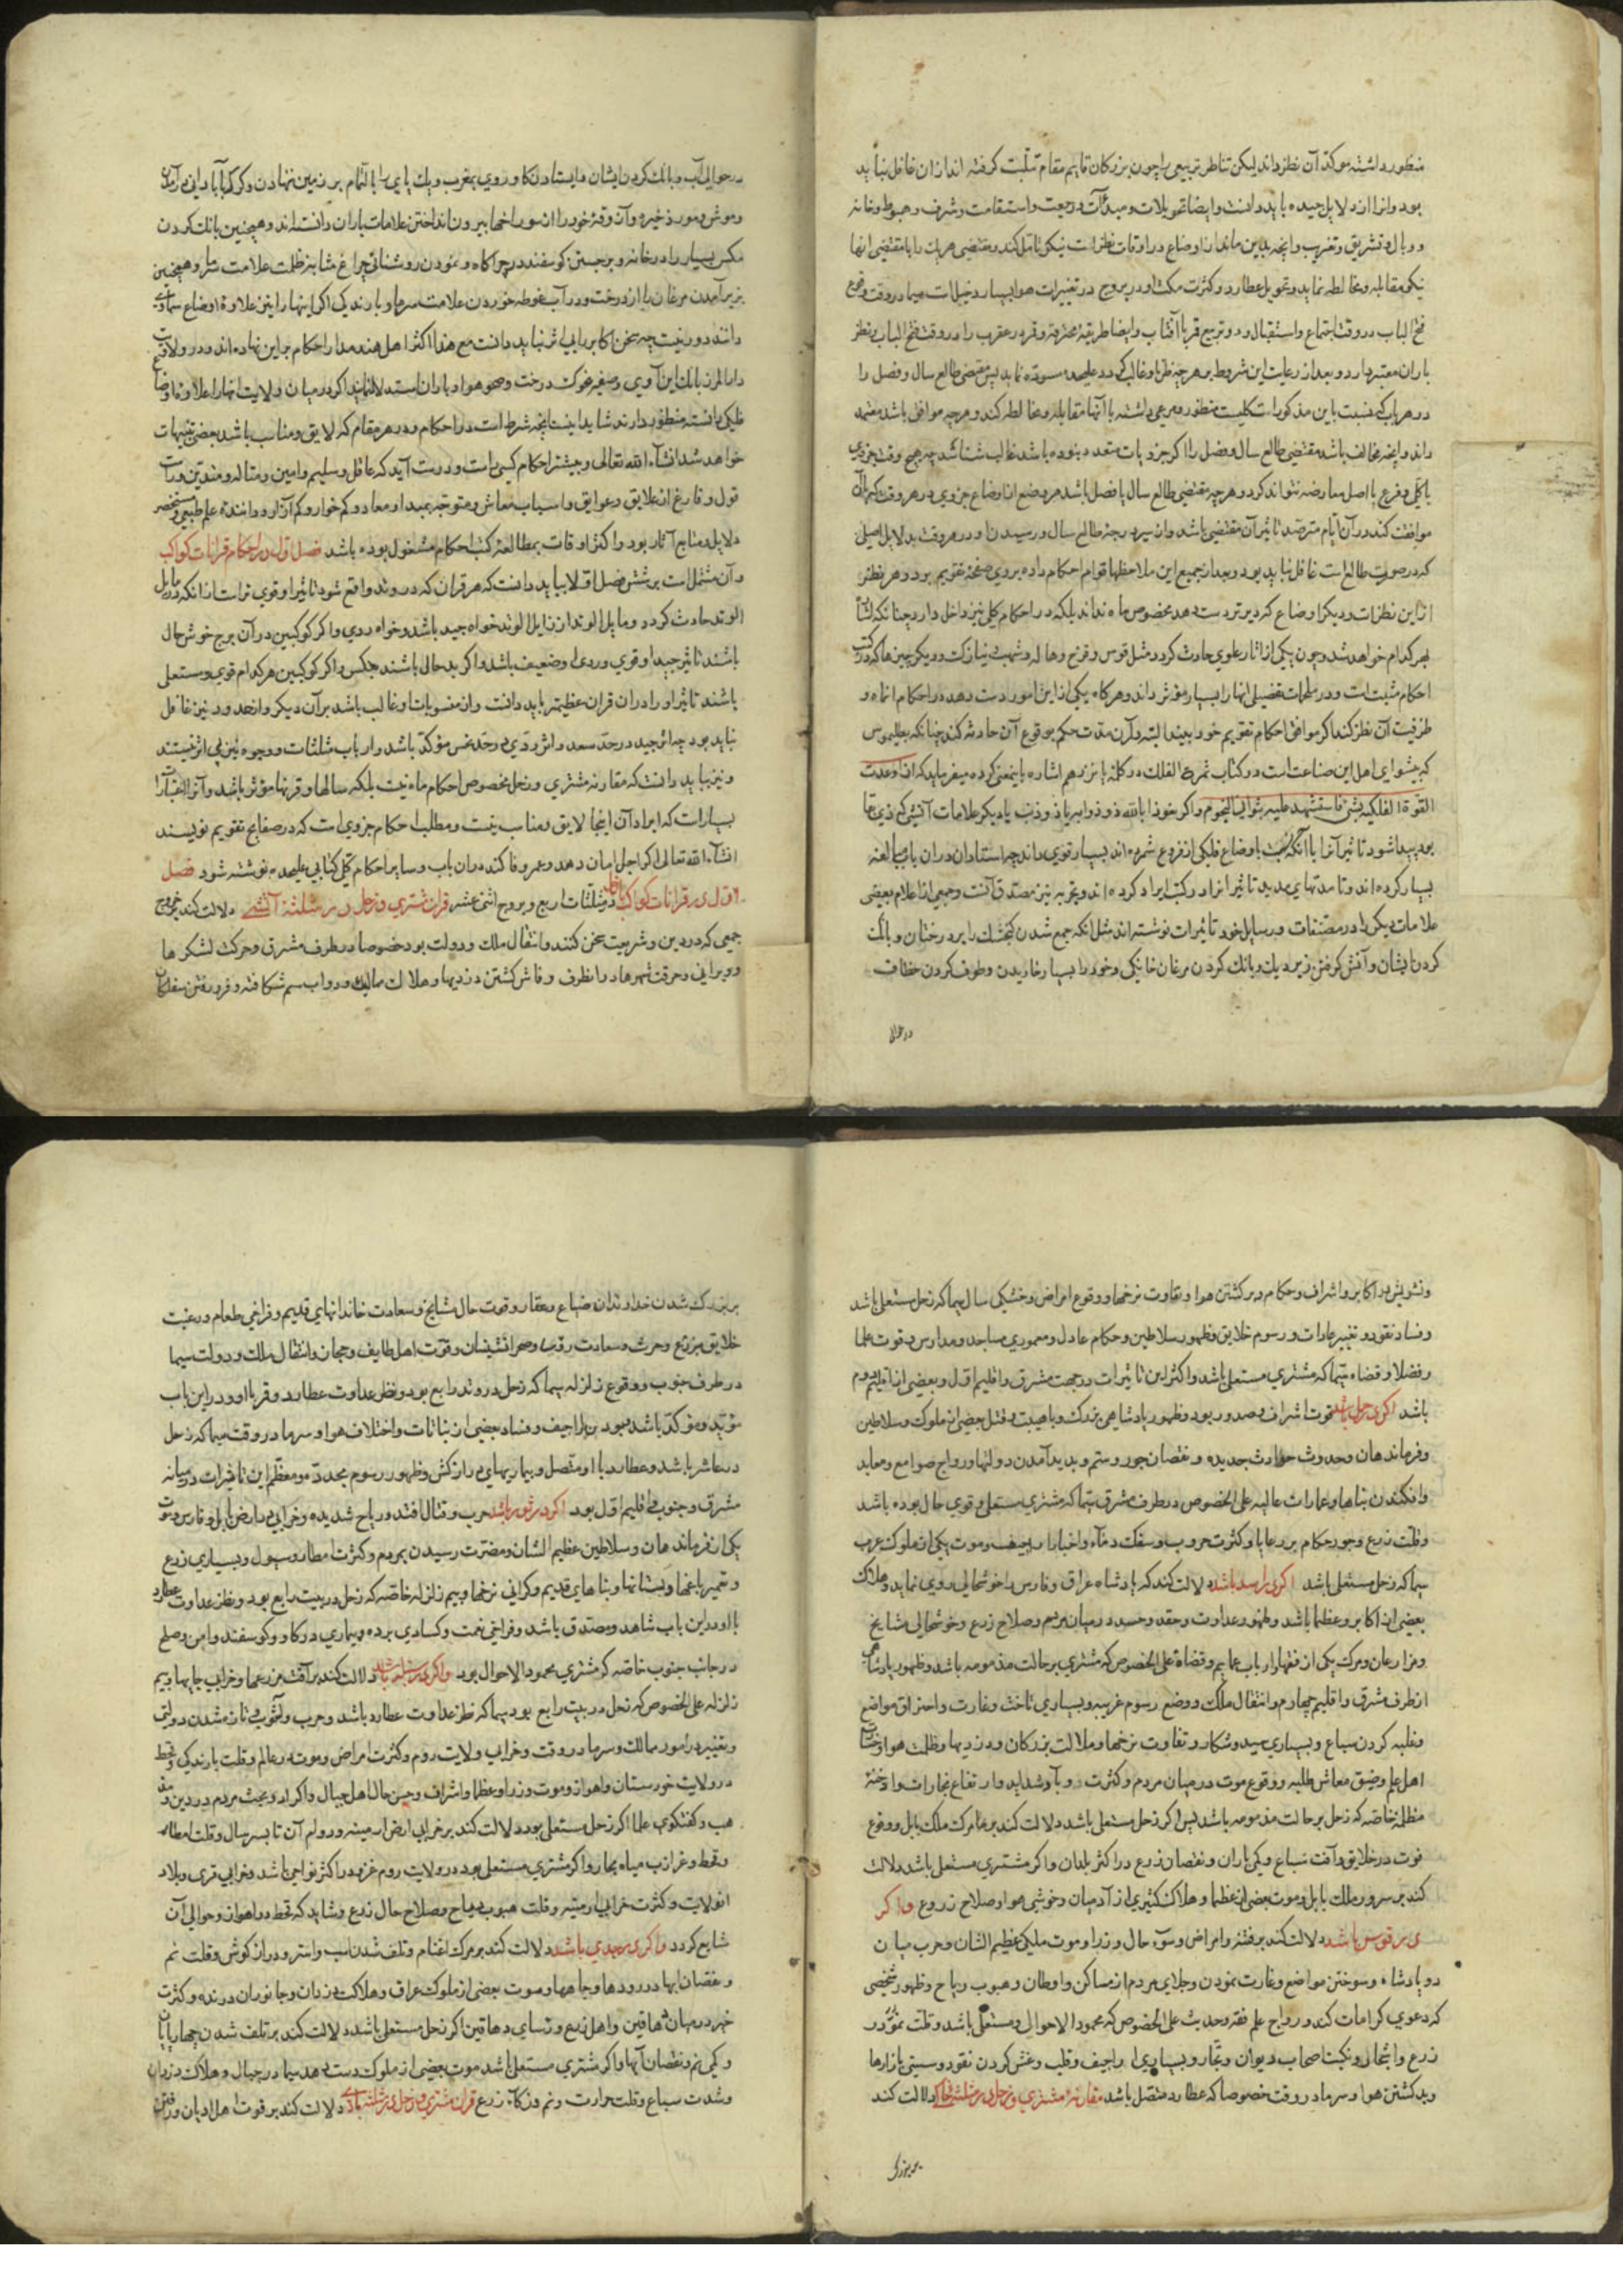 منظور داشته موکد آن نظر داند لیکن تناظر تربیعی را چون بزرکان قایم مقام تثلیت کرفته اند ازان غافل نباید
بود و انرا از دلایل جیده باید دانست و ایضا تحویلات و مبدأت و رجعت و استقامت و شرف و هبوط و خانه
و وبال و تشریق و تغریب و آنچه بدین ماند از اوضاع در اوقات نظرات نیکو تامل کند و مقتضی هر یک را با مقتضی انها
نیکو مقابله و مخالطه نماید و تحویل عطارد و کثرت مکث او در بروج در تغییرات هوا بسیار دخیل است سیما در وقت وقوع
فتح الباب در وقت اجتماع و استقبال و دو تربیع قمر با آفتاب و ایضا طریقه محترقه و قمر در عقرب را در وقت فتح الباب و نظر
باران معتبر دارد و بعد از رعایت این شروط بر هر چه ظن او غالب کردد علیحده مسوده نماید پس مقتضی طالع سال و فصل را
در هر باب که نسبت باین مذکورات کلیست منظور و مرعی داشته با آنها مقابله و مخالطه کند و هر چه موافق باشد معتمد
داند و آنچه مخالف باشد مقتضی طالع سال و فصل را اکر جزویات متعدد نبوده باشد غالب شناسد چه هیچ وقت جزوی
با کلی و فرع با اصل معارضه نتواند کرد و هر چه مقتضی طالع سال یا فصل باشد هر وضع از اوضاع جزوی در هر وقت که با آن
موافقت کند در آن ایام مترصد تاثیر آن مقتضی باشد و از سیر درجهٔ طالع سال و رسیدن او در هر وقت بدلایل اصیلی
که در صورت طالع است غافل نباید بود و بعد از جمیع این ملاحظها قوام احکام داده بروی صفحه تقویم برد و هر نظر
از این نظرات و دیکر اوضاع که دیرتر دست دهد مخصوص ماه نداند بلکه در احکام کلی نیز داخل دارد چنانکه اشارت
بهر کدام خواهد شد و چون یکی از اثار علوی حادث کردد مثل قوس و قزح و هاله و شهب و نیازک و دیکر چیزها که در کتب
احکام مثبت است و در مطولات تفصیلی انها را بسیار مؤثر داند و هرکاه یکی از این امور دست دهد در احکام آنماه و
طرفیت آن نظر کند اکر موافق احکام تقویم خود بیند البته در آن مدت حکم بوقوع آن حادثه کند چنانکه بطلیموس
که پیشوای اهل این صناعت است در کتاب ثمرة الفلک در کلمهٔ پانزدهم اشاره باینمعنی کرده میفرماید که اذا وعدت
القوة الفلکیه بشئ فاستشهد علیه بثوانی النجوم و اکر نعوذ بالله ذو ذوابه یا ذو ذنب یا دیکر علامات آتشی که ذی بقا
بود پیدا شود تاثیر آنرا با آنکه نسبت باوضاع فلکی از فروع شمرده اند بسیار قوی داند چه استادان دران باب مبالغه
بسیار کرده اند و تا مدتهای مدید تاثیر انرا در کتب ایراد کرده اند و تجربه نیز مصدق آنست و جمعی از اعلام بعضی
علامات دیکر را در مصنفات و رسایل خود تاثیرات نوشته اند مثل انکه جمع شدن کنجشک را بر درختان و بانک
کردن ایشان و آتش کرفتن زیر دیک و بانک کردن مرغان خانکی و خود را بسیار خاریدن و طوف کردن خطاف
در حوالی
در حوالی آب و بانک کردن ایشان و ایستادن کاو روی بمغرب و یک پای را بالتمام بر زمین نهادن و کرکها بآبادانی در آمدن
و موش و مور ذخیره و آذوقهٔ خود را از سوراخها بیرون انداختن علامات باران دانسته اند و همچنین بانک کردن
مکس بسیار را در خانه و برجستن کوسفند در چراکاه و نمودن روشنائی چراغ مشابه ظلمت علامت سرما و همچنین
بزیر آمدن مرغان را از درخت و در آب غوطه خوردن علامت سرما و بارندکی اکر اینها را نیز علاوهٔ اوضاع سماوی
دانند دور نیست چه سخن اکابر را بی اثر نباید دانست مع هذا اکثر اهل هند مدار احکام بر این نهاده اند و در ولایت
دار المرز بانک ابن آوی و صفیر غوک درخت و صحو هوا و باران استدلال نمایند اکر در میان ولایت انها را علاوهٔ اوضاع
فلکی دانسته منظور دارند شاید اینست آنچه شرط است در احکام و در هر مقام که لایق و مناسب باشد بعضی تنبیهات
خواهد شد انشآء الله تعالی و بیشتر احکام کسی راست و درست آید که عاقل و سلیم و امین و متاله و متدین و راست
قول و فارغ از علایق و عوایق و اسباب معاش و متوجه بمبدا و معاد و کم خوار و کم آزار و داننده علم طبیعی و مستحضر
دلایل و منابع آثار بود و اکثر اوقات بمطالعهٔ کتب احکام مشغول بوده باشد فصل اول در احکام قرانات کواکب
و آن مشتمل است بر شش فصل اولا بباید دانست که هر قران که در وتد واقع شود تاثیر او قوی تر است از انکه در مایل
الوتد حادث کردد و مایل الوتد از زایل الوتد خواه جید باشد و خواه ردی و اکر کوکبین در آن برج خوش حال
باشند تاثیر جید او قوی و ردی او ضعیف باشد و اکر بد حال باشند بعکس و اکر کوکبین هر کدام قوی و مستعلی
باشند تاثیر او را در ان قران عظیمتر باید دانست و ان منسوبات او غالب باشد بر آن دیکر و از حدود نیز غافل
نباید بود چه اثر جید در حد سعد و اثر ردی در حد نحس مؤکد باشد و ارباب مثلثات و وجوه نیز بی اثر نیستند
و نیز بباید دانست که مقارنه مشتری و زحل مخصوص احکام ماه نیست بلکه سالها و قرنها مؤثر باشد و آنرا اعتبارات
بسیار است که ایراد آن اینجا لایق و مناسب نیست و مطلب احکام جزوی است که در صفایح تقویم نویسند
انشآء الله تعالی اکر اجل امان دهد و عمر وفا کند دران باب و سایر احکام کلی کتابی علیحده نوشته شود فصل
اول در قرانات کواکب در مثلثات اربع و بروج اثنی عشر قران مشتری و زحل در مثلثه آتشی دلالت کند بر خروج
جمعی که در دین و شریعت سخن کنند و انتقال ملک و دولت بود خصوصا در طرف مشرق و حرکت لشکرها
و ویرانی و حرقت شهرها در انطرف و فاش کشتن دزدیها و هلاک ممالیک و دواب سم شکافته و فرو رفتن سفلکان
و تشویش در اکابر و اشراف و حکام و بر کشتن هوا و تفاوت نرخها و وقوع امراض و خشکی سال سیما که زحل مستعلی باشد
و فساد نقود و تغییر عادات و رسوم خلایق و ظهور سلاطین و حکام عادل و معموری مساجد و مدارس و قوت علما
و فضلا و قضاه سیما که مشتری مستعلی باشد و اکثر این تاثیرات در جهت مشرق و اقلیم اول و بعضی از اقلیم دوم
باشد اکر در حمل باشد قوت اشراف و صدور بود و ظهور پادشاهی بزرک و با هیبت و قتل بعضی از ملوک و سلاطین
و فرماندهان و حدوث حوادث جدیده و نقصان جور و ستم و پدید آمدن دولتها و رواج صوامع و معابد
و افکندن بناها و عمارات عالیه علی الخصوص در طرف مشرق سیما که مشتری مستعلی و قوی حال بوده باشد
و قلت زرع و جور حکام بر رعایا و کثرت حروب و سفک دمآء و اخبار اراجیف و موت یکی از ملوک عرب
سیما که زحل مستعلی باشد اکر در اسد باشد دلالت کند که پادشاه عراق و فارس را خوشحالی روی نماید و هلاک
بعضی از اکابر و عظما باشد و ظهور عداوت و حقد و حسد در میان مردم و صلاح زرع و خوشحالی مشایخ
و مزارعان و مرک یکی از فقها و ارباب عمایم و قضاة علی الخصوص که مشتری بر حالت مذمومه باشد و ظهور پادشاهی
از طرف مشرق و اقلیم چهارم و انتقال ملک و وضع رسوم غریبه و بسیاری تاخت و غارت و احتراق مواضع
و غلبه کردن سباع و بسیاری صید و شکار و تفاوت نرخها و ملالت بزرکان و دزدیها و ظلمت هوا و خسارت
اهل علم و ضیق معاش طلبه و وقوع موت در میان مردم و کثرت وبا و شداید و ارتفاع بخارات و ادخنهٔ
مظلمه خاصه که زحل بر حالت مذمومه باشد پس اکر زحل مستعلی باشد دلالت کند بر غم و مرک ملک بابل و وقوع
فوت در خلایق و آفت سباع و کمی باران و نقصان زرع در اکثر بلدان و اکر مشتری مستعلی باشد دلالت
کند بر سرور ملک بابل و موت بعضی از عظما و هلاک کثیری از آدمیان و خوشی هوا و صلاح زروع و اکر
در قوس باشد دلالت کند بر فتنه و امراض و سوء حال وزرا و موت ملکی عظیم الشان و حرب میان
دو پادشاه و سوختن مواضع و غارت نمودن و جلای مردم از مساکن و اوطان و هبوب ریاح و ظهور شخصی
که دعوی کرامات کند و رواج علم فقه و حدیث علی الخصوص که محمود الاحوال و مستعلی باشد و قلت نمو در
زرع و اشجار و نکبت اصحاب دیوان و تجار و بسیاری اراجیف و قلب و غش کردن نقود و سستی بازارها
و بد کشتن هوا و سرما در وقت خصوصا که عطارد متصل باشد مقارنهٔ مشتری و زحل در مثلثه خاکی دلالت کند
بر بزرک
بر بزرک شدن خداوندان ضیاع و عقار و قوت حال مشایخ و سعادت خاندانهای قدیم و فراخی طعام و رغبت
خلایق بمزارع و حرث و سعادت رؤسا و صحرا نشینان و قوت اهل طایف و حجاز و انتقال ملک و دولت سیما
در طرف جنوب و وقوع زلزله سیما که زحل در وتد رابع بود و نظر عداوت عطارد و قمر با او در این باب
مؤید و مؤکد باشد و بود اراجیف و فساد بعضی از نباتات و اختلاف هوا و سرما در وقت سیما که زحل
در عاشر باشد و عطارد با او متصل و بیماریهای دراز کش و ظهور رسوم مجدد و معظم این تاثیرات در میانه
مشرق و جنوب و اقلیم اول بود اکر در ثور باشد حرب و قتال افتد و ریاح شدیده و خرابی در ارض بابل و فارس و موت
یکی از فرماندهان و سلاطین عظیم الشان و مضرت رسیدن بمردم و کثرت امطار و سیول و بسیاری زرع
و تعمیر باغها و بستانها و بناهای قدیم و کرانی نرخها و بیم زلزله خاصه که زحل در بیت رابع بود و نظر عداوت عطارد
با او در این باب شاهد و مصدق باشد و فراخی نعمت و کسادی برده و بیماری در کاو و کوسفند و امن و صلح
در جانب جنوب خاصه که مشتری محمود الاحوال بود و اکر در سنبله باشد دلالت کند بر آفت مزرعها و خرابی جایها و بیم
زلزله علی الخصوص که زحل در بیت رابع بود سیما که نظر عداوت عطارد باشد و حرب و آشوب و تازه شدن دولتی
و تغییر در امور ممالک و سرما در وقت و خرابی ولایت روم و کثرت امراض و موت در عالم و قلت بارندکی و قحط
در ولایت خوزستان و اهواز و موت وزرا و عظما و اشراف و حسن حال اهل جبال و اکراد و بحث مردم در دین و مذ
هب و کفتکوی علما اکر زحل مستعلی بود دلالت کند بر خرابی ارض ارمینیه و دوام آن تا بسه سال و قلت امطار
و قحط و غرایب میاه بحار و اکر مشتری مستعلی بود در ولایت روم غزو در اکثر نواحی باشد و خرابی قری و بلاد
انولایت و کثرت خرابی ارمینیه و قلت هبوب ریاح و صلاح حال زرع و شاید که قحط در اهواز و حوالی آن
شایع کردد و اکر در جدی باشد دلالت کند بر مرک اغنام و تلف شدن اسب و استر و دراز کوش و قلت نم
و نقصان ابها در رودها و چاهها و موت بعضی از ملوک عراق و هلاکت دزدان و جانوران درنده و کثرت
خیر در میان دهاقین و اهل زرع و نسای دهاقین اکر زحل مستعلی باشد دلالت کند بر تلف شدن چهارپایان
و کمی نم و نقصان آبها و اکر مشتری مستعلی باشد موت بعضی از ملوک دست دهد سیما در جبال و هلاک دزدان
و شدت سباع و قلت حرارت و نم و زکاة زرع قران مشتری و زحل در مثلثه بادی دلالت کند بر قوت اهل ادیان و رفتن